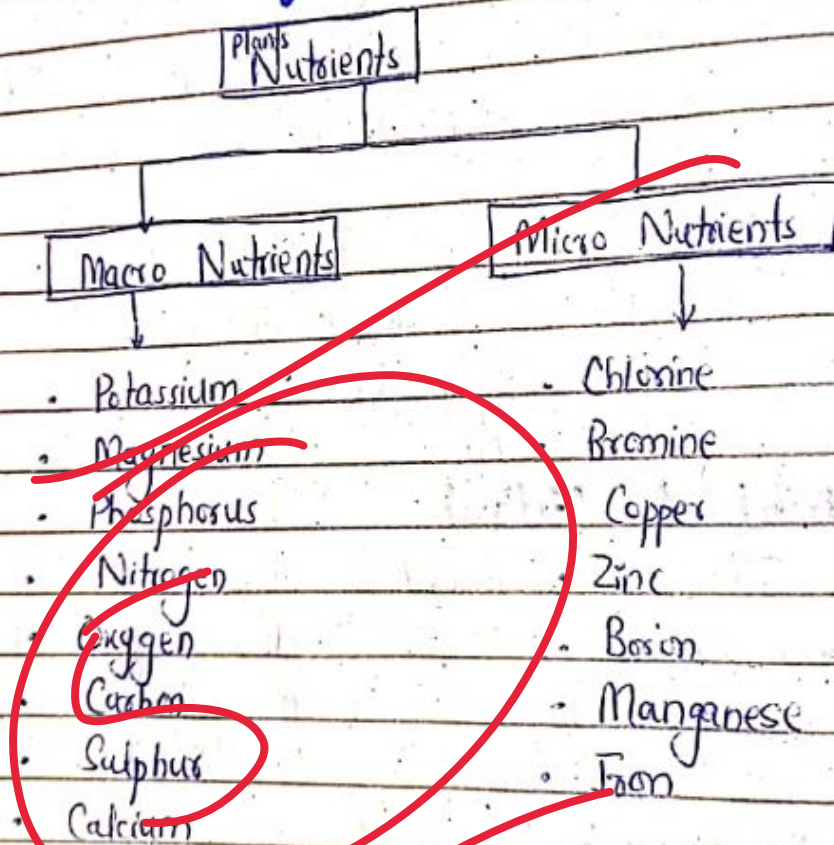 Plants
Nutrients
Macro Nutrients
Micro Nutrients
• Potassium
• Magnesium
• Phosphorus
• Nitrogen
• Oxygen
• Carbon
• Sulphur
• Calcium
• Chlorine
• Bromine
• Copper
• Zinc
• Boron
• Manganese
• Iron